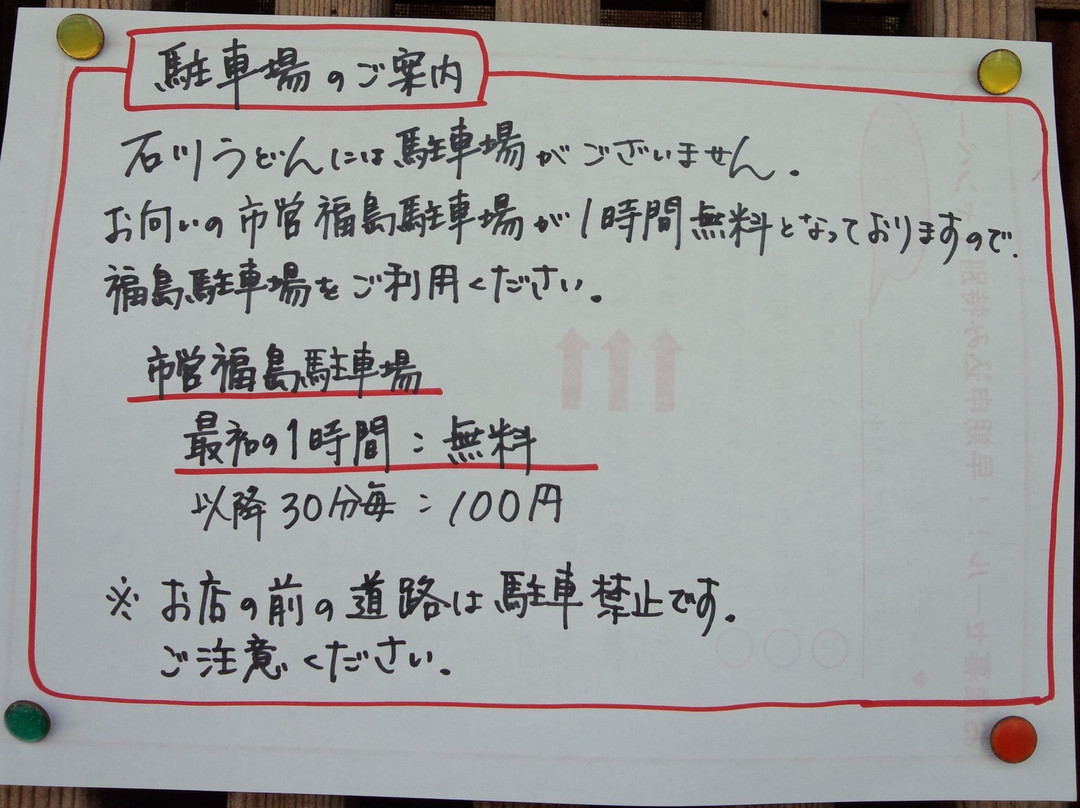 駐車場のご案内
石川うどんには駐車場がございません。
お向いの市営福島駐車場が1時間無料となっておりますので、
福島駐車場をご利用ください。
市営福島駐車場
最初の1時間:無料
以降30分毎:100円
※お店の前の道路は駐車禁止です。
ご注意ください。